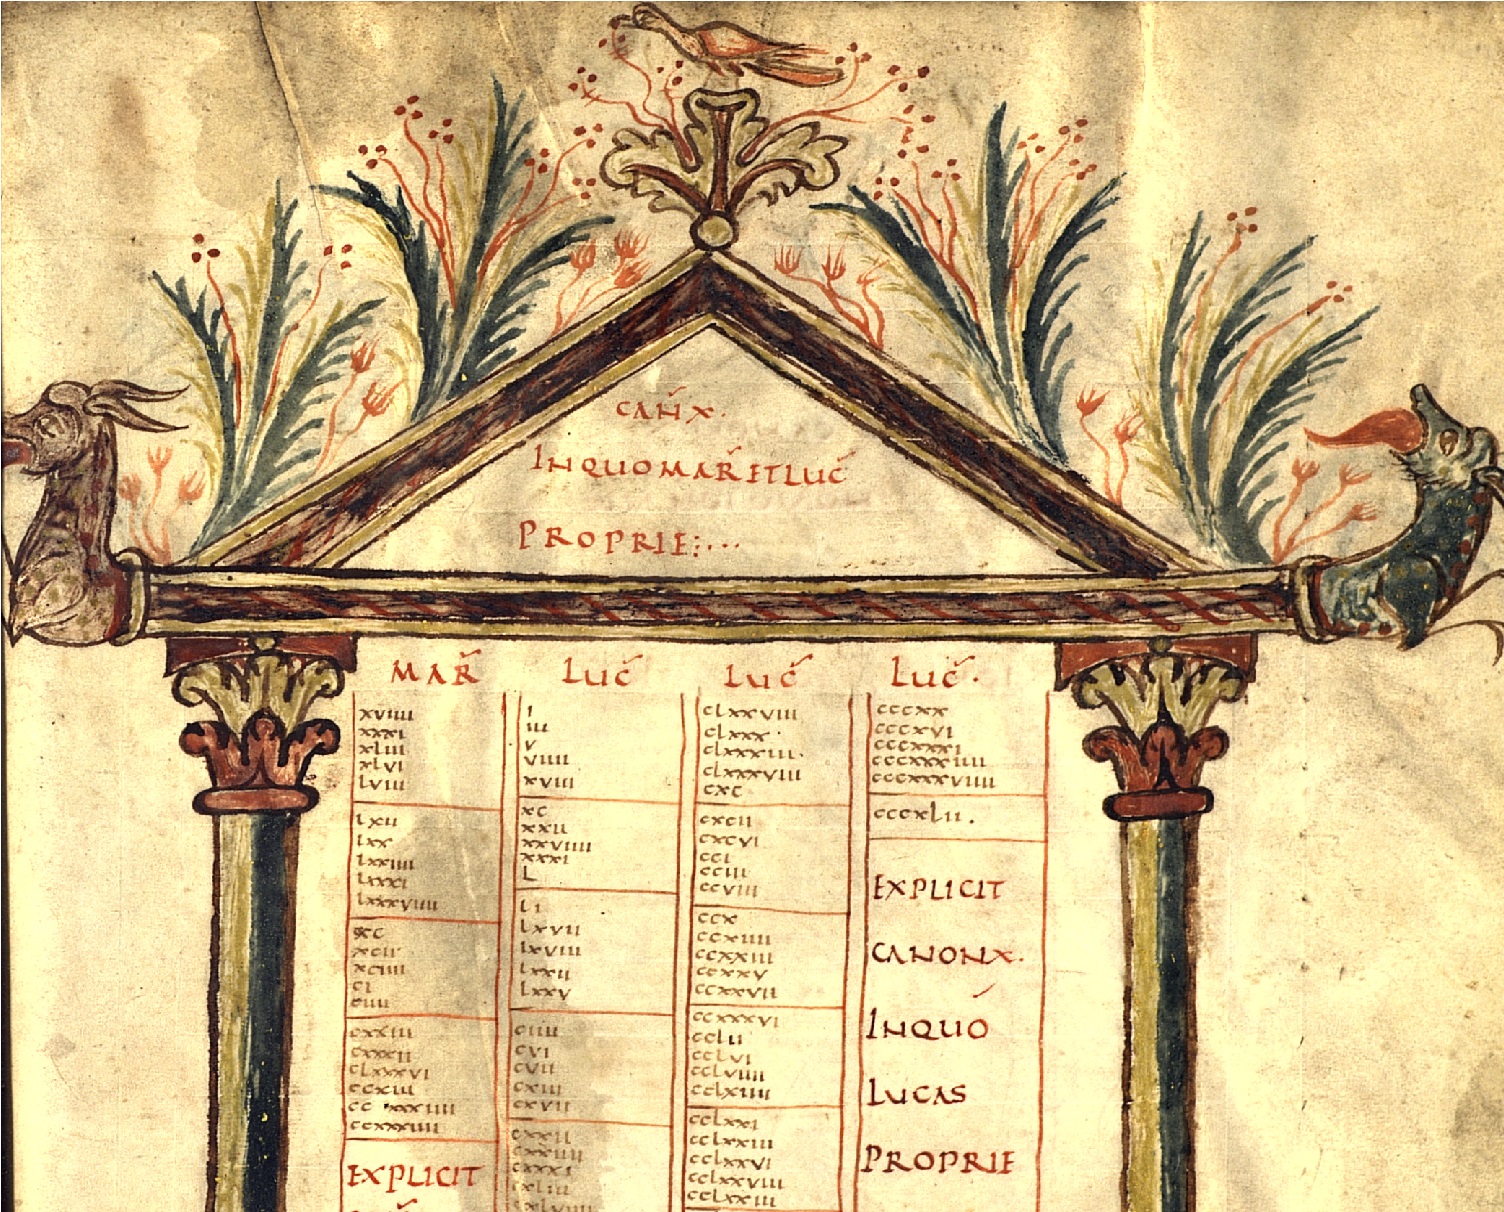 CAÑ X.
IN QUO MAR̃ ET LUC̃
PROPRIE:...
MAR̃
xviiii
xxxi
xliii
xlvi
lviii
lxii
lxx
lxxiiii
lxxxi
lxxxviiii
xc
xcii
xciiii
ci
ciiii
cxxiii
cxxxii
clxxxvi
ccxiii
ccxxxiiii
EXPLICIT
LUC̃
i
iii
v
viiii
xviii
xc
xxii
xxviiii
xxxi
L
li
lxvii
lxviii
lxxii
lxxv
ciiii
cvi
cvii
cxiii
cxvii
cxxii
cxxxi
cxliii
LUC̃
clxxviii
clxxx
clxxxiii.
clxxxviii
cxc
cxcii
cxcvi
cci
cciii
ccviii
ccx
ccxiiii
ccxxiii
ccxxv
ccxxvii
ccxxxvi
cclii
cclvi
cclviiii
cclxiiii
cclxxi
cclxxiii
cclxxvi
cclxxviii
cclxxiii
LUC̃.
cccxx
cccxvi
cccxxxi
cccxxxiiii
cccxxxviiii
cccxlii.
EXPLICIT
CANON X.
IN QUO
LUCAS
PROPRIE